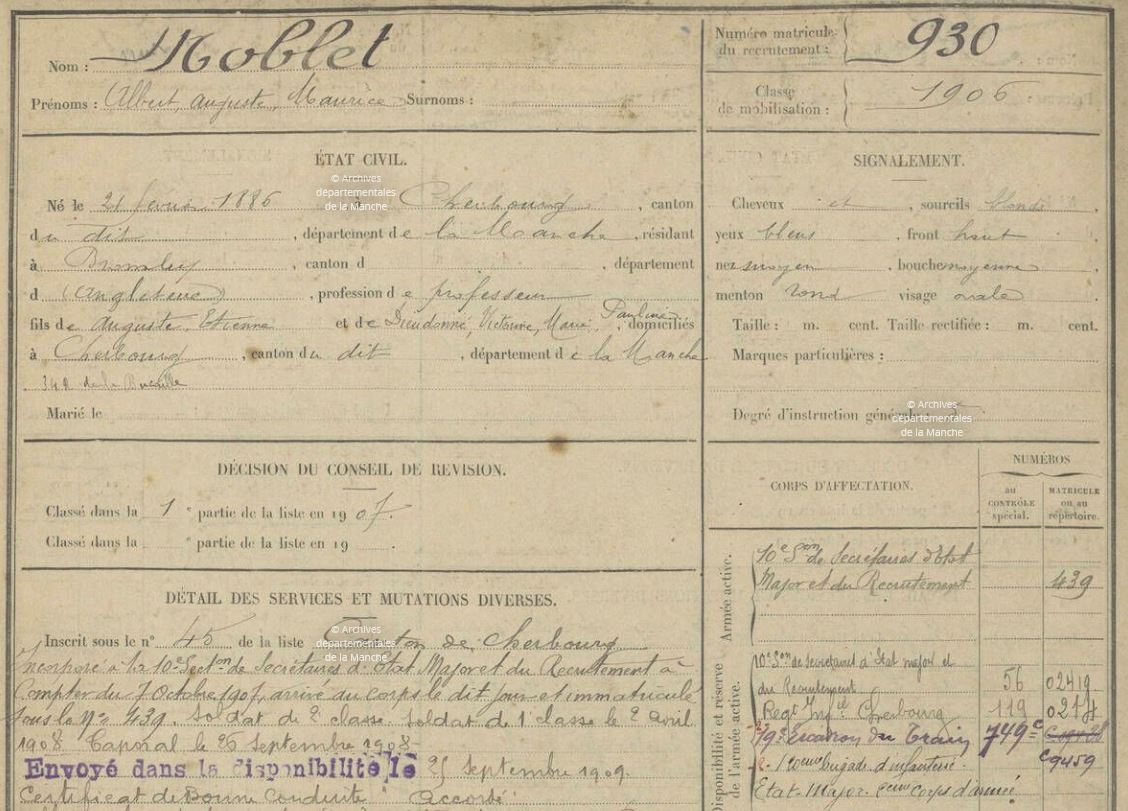 Nom : Noblet
Prénoms : Albert, Auguste, Maurice Surnoms :
Numéro matricule du recrutement : 930
Classe de mobilisation : 1906
ÉTAT CIVIL.
© Archives
départementales
de la Manche
Né le 21 février 1886 à Cherbourg, canton
du dit, département de la Manche, résidant
à Bromley, canton d , département
d (Angleterre), profession de professeur
fils de Auguste, Etienne et de Dieudonné, Victoire, Marie, Pauline, domiciliés
à Cherbourg, canton du dit, département de la Manche
34 R. de la Bucaille
Marié le
SIGNALEMENT.
Cheveux et , sourcils blonds,
yeux bleus, front haut
nez moyen, bouche moyenne
menton rond visage ovale
Taille : m. cent. Taille rectifiée : m. cent.
Marques particulières :
Degré d'instruction générale :
© Archives
départementales
de la Manche
DÉCISION DU CONSEIL DE REVISION.
Classé dans la 1e partie de la liste en 1907
Classé dans la e partie de la liste en 19 .
DÉTAIL DES SERVICES ET MUTATIONS DIVERSES.
Inscrit sous le n° 45 de la liste Canton de Cherbourg
© Archives
départementales
de la Manche
Incorporé à la 10e Secton de Secrétaires d'Etat Major et du Recrutement à
Compter du 7 Octobre 1907, arrivé du corps le dit jour et immatriculé
sous le No 439. Soldat de 2e classe. Soldat de 1e classe le 2 avril
1908 Caporal le 26 Septembre 1908
Envoyé dans la disponibilité le 25 Septembre 1909.
Certificat de Bonne Conduite "Accordé"
CORPS D'AFFECTATION.
NUMÉROS
au CONTRÔLE spécial.
MATRICULE ou au répertoire.
Armée active.
10e Son de Secrétaires d'Etat
Major et du Recrutement 439
Disponibilité et réserve de l'armée active.
10e Son de Secrétaires d'Etat major et
du Recrutement 56 02419
Regt Infie Cherbourg 119
Escadron du Train 749e
brigade d'infanterie c9459
Etat-Major corps d'armée